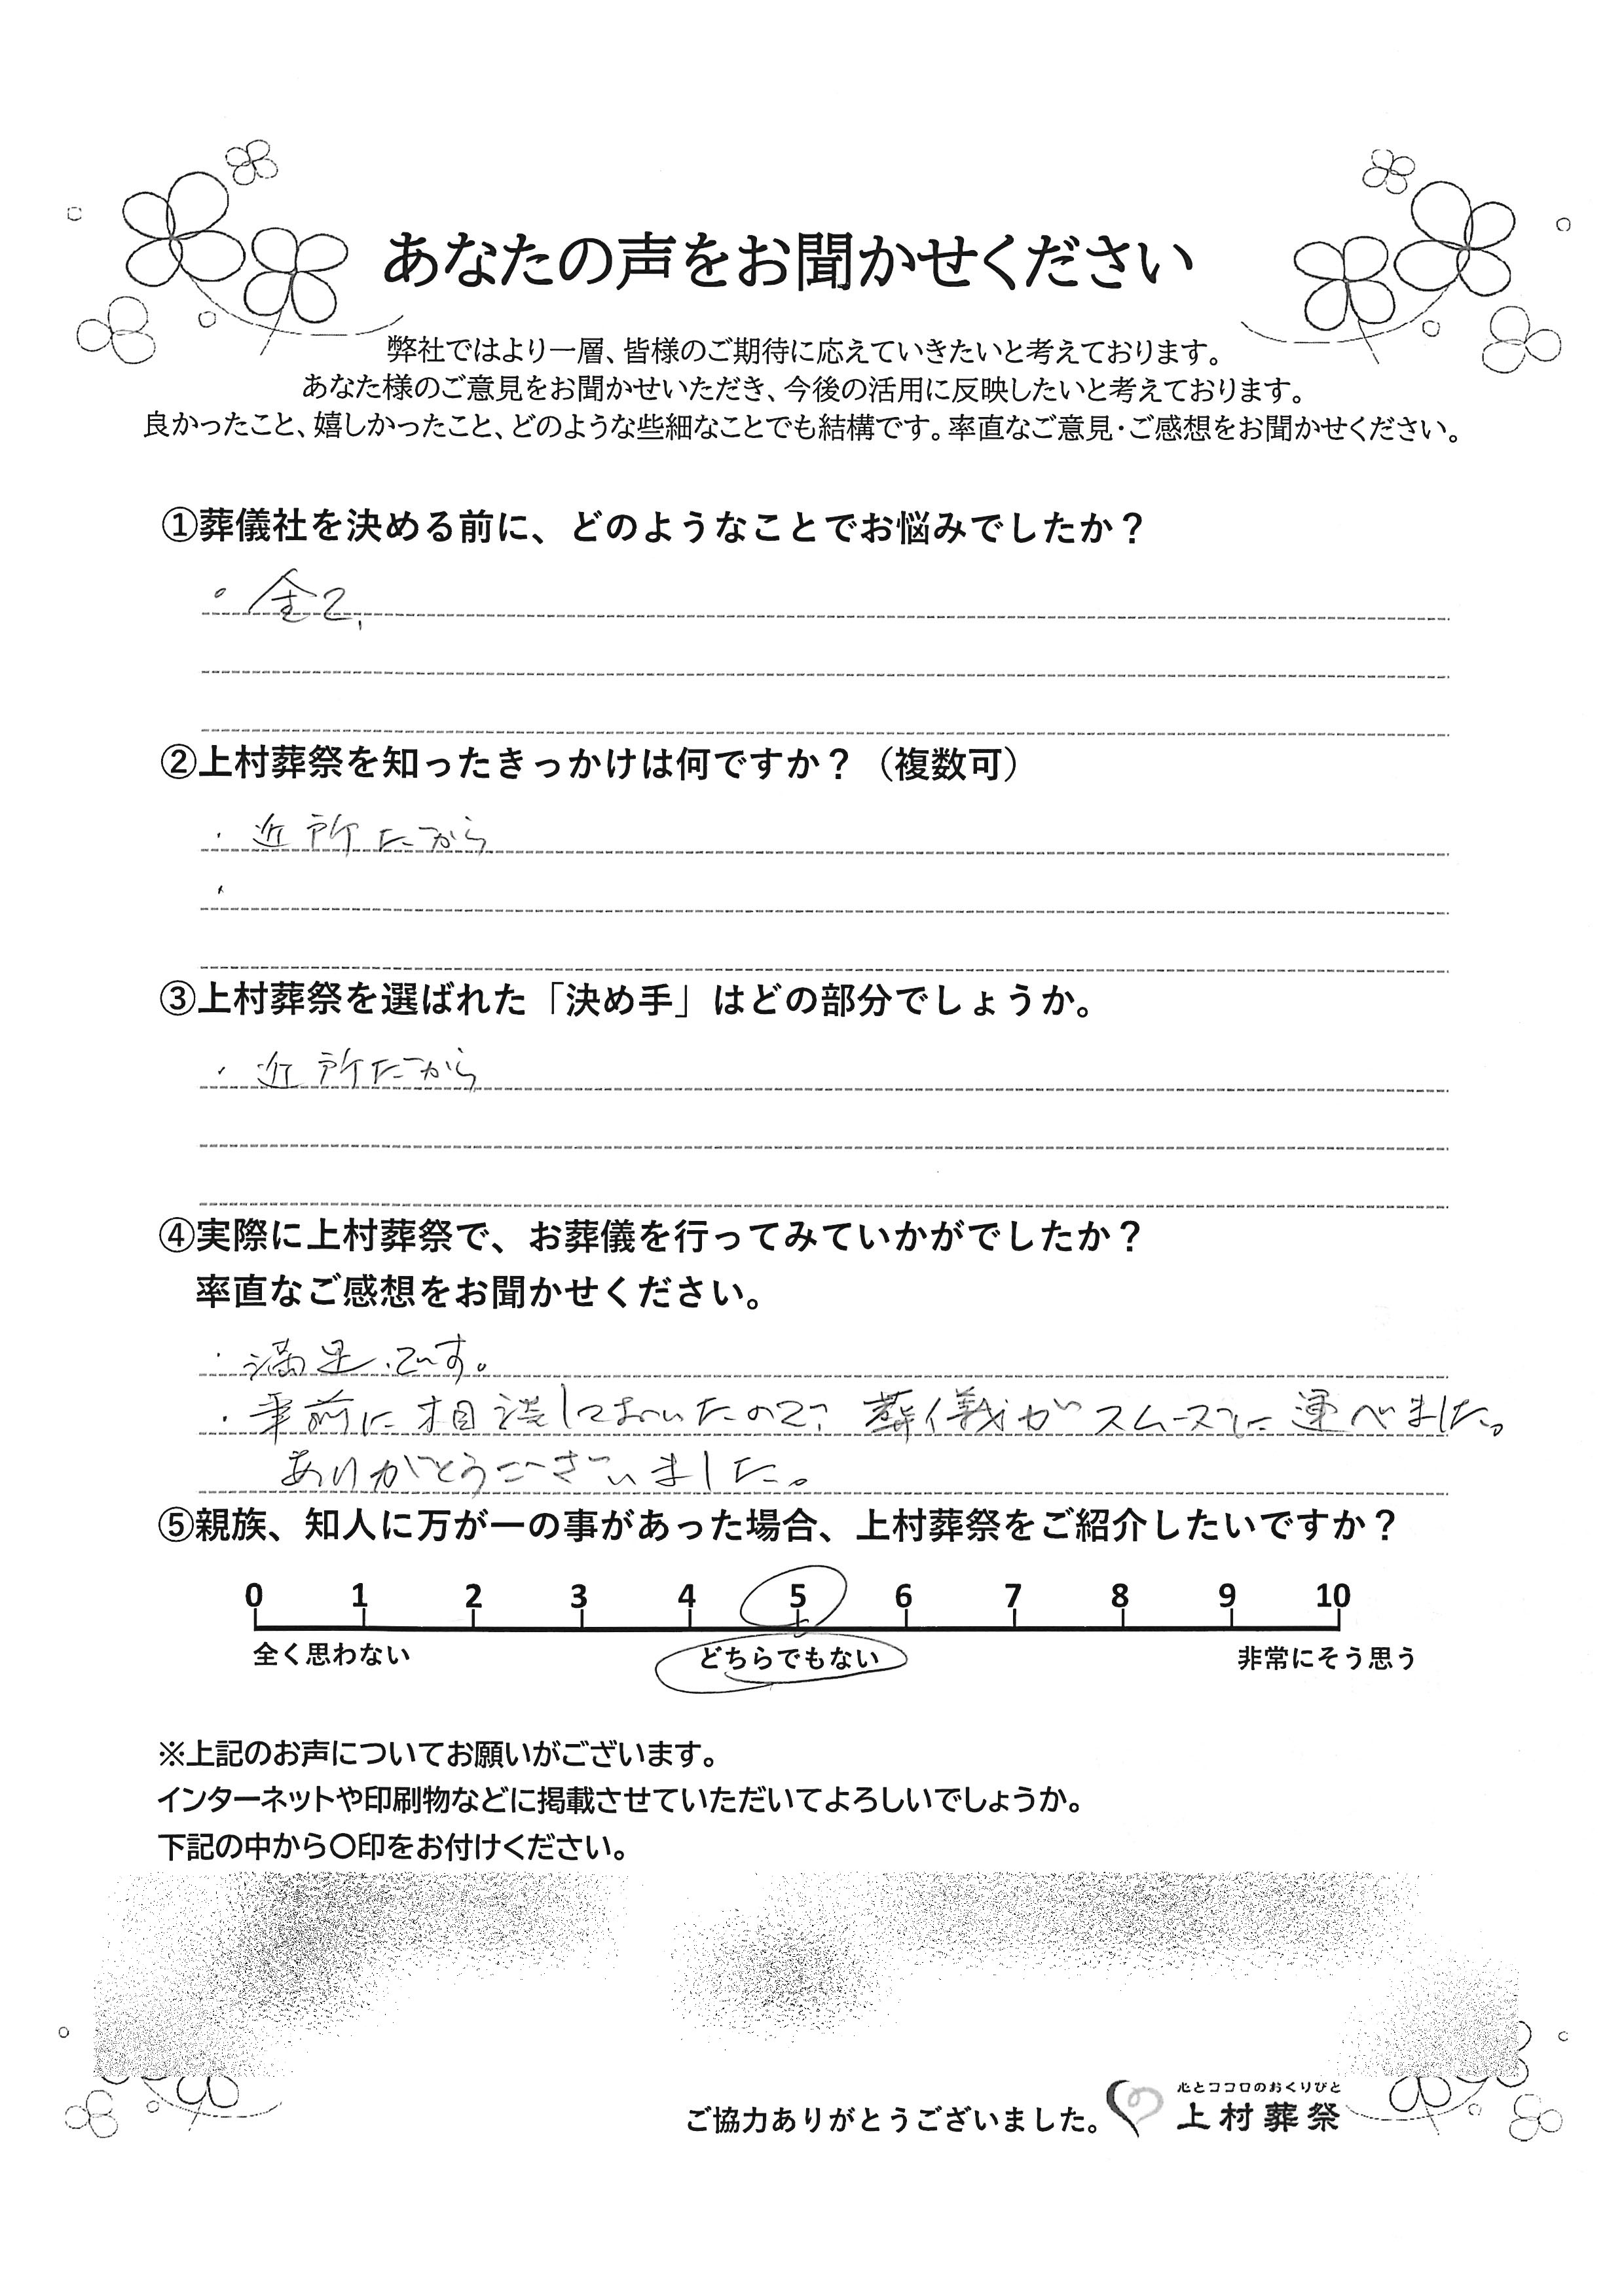 あなたの声をお聞かせください
弊社ではより一層、皆様のご期待に応えていきたいと考えております。
あなた様のご意見をお聞かせいただき、今後の活用に反映したいと考えております。
良かったこと、嬉しかったこと、どのような些細なことでも結構です。率直なご意見・ご感想をお聞かせください。
①葬儀社を決める前に、どのようなことでお悩みでしたか？
②上村葬祭を知ったきっかけは何ですか？（複数可）
・近所だから
・
③上村葬祭を選ばれた「決め手」はどの部分でしょうか。
・近所だから
④実際に上村葬祭で、お葬儀を行ってみていかがでしたか？
率直なご感想をお聞かせください。
・満足です。
・事前に相談しておいたので、葬儀がスムーズに運べました。
ありがとうございました。
⑤親族、知人に万が一の事があった場合、上村葬祭をご紹介したいですか？
0 1 2 3 4 5 6 7 8 9 10
全く思わない どちらでもない 非常にそう思う
※上記のお声についてお願いがございます。
インターネットや印刷物などに掲載させていただいてよろしいでしょうか。
下記の中から〇印をお付けください。
心とココロのおくりびと
ご協力ありがとうございました。 上村葬祭